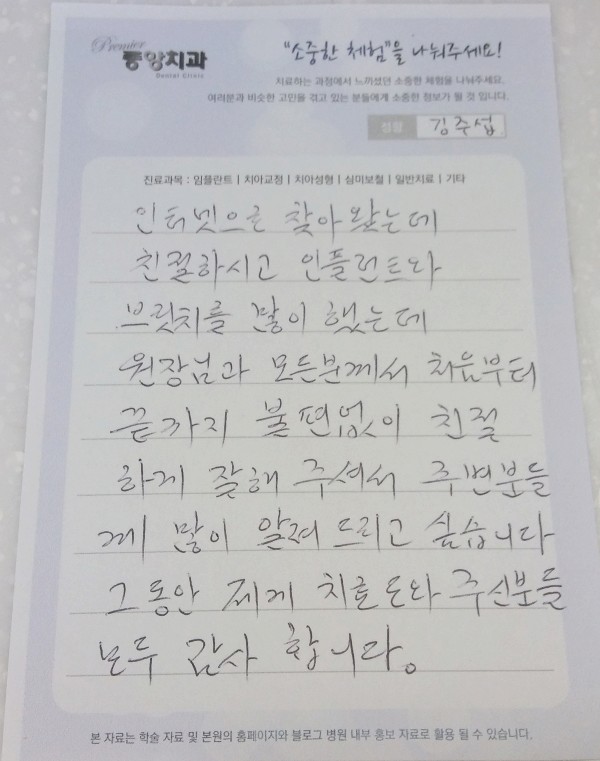 Premier
중앙치과
Dental Clinic
"소중한 체험"을 나눠주세요!
치료하는 과정에서 느끼셨던 소중한 체험을 나눠주세요.
여러분과 비슷한 고민을 겪고 있는 분들에게 소중한 정보가 될 것 입니다.
성함 김주섭
진료과목 : 임플란트 | 치아교정 | 치아성형 | 심미보철 | 일반치료 | 기타
인터넷으로 찾아왔는데
친절하시고 인플런트와
브릿치를 많이 했는데
원장님과 모든분께서 처음부터
끝까지 불편없이 친절
하게 잘해 주셔서 주변분들
께 많이 알려 드리고 싶습니다
그동안 제게 치료 도와 주신분들
모두 감사 합니다。
본 자료는 학술 자료 및 본원의 홈페이지와 블로그 병원 내부 홍보 자료로 활용 될 수 있습니다.